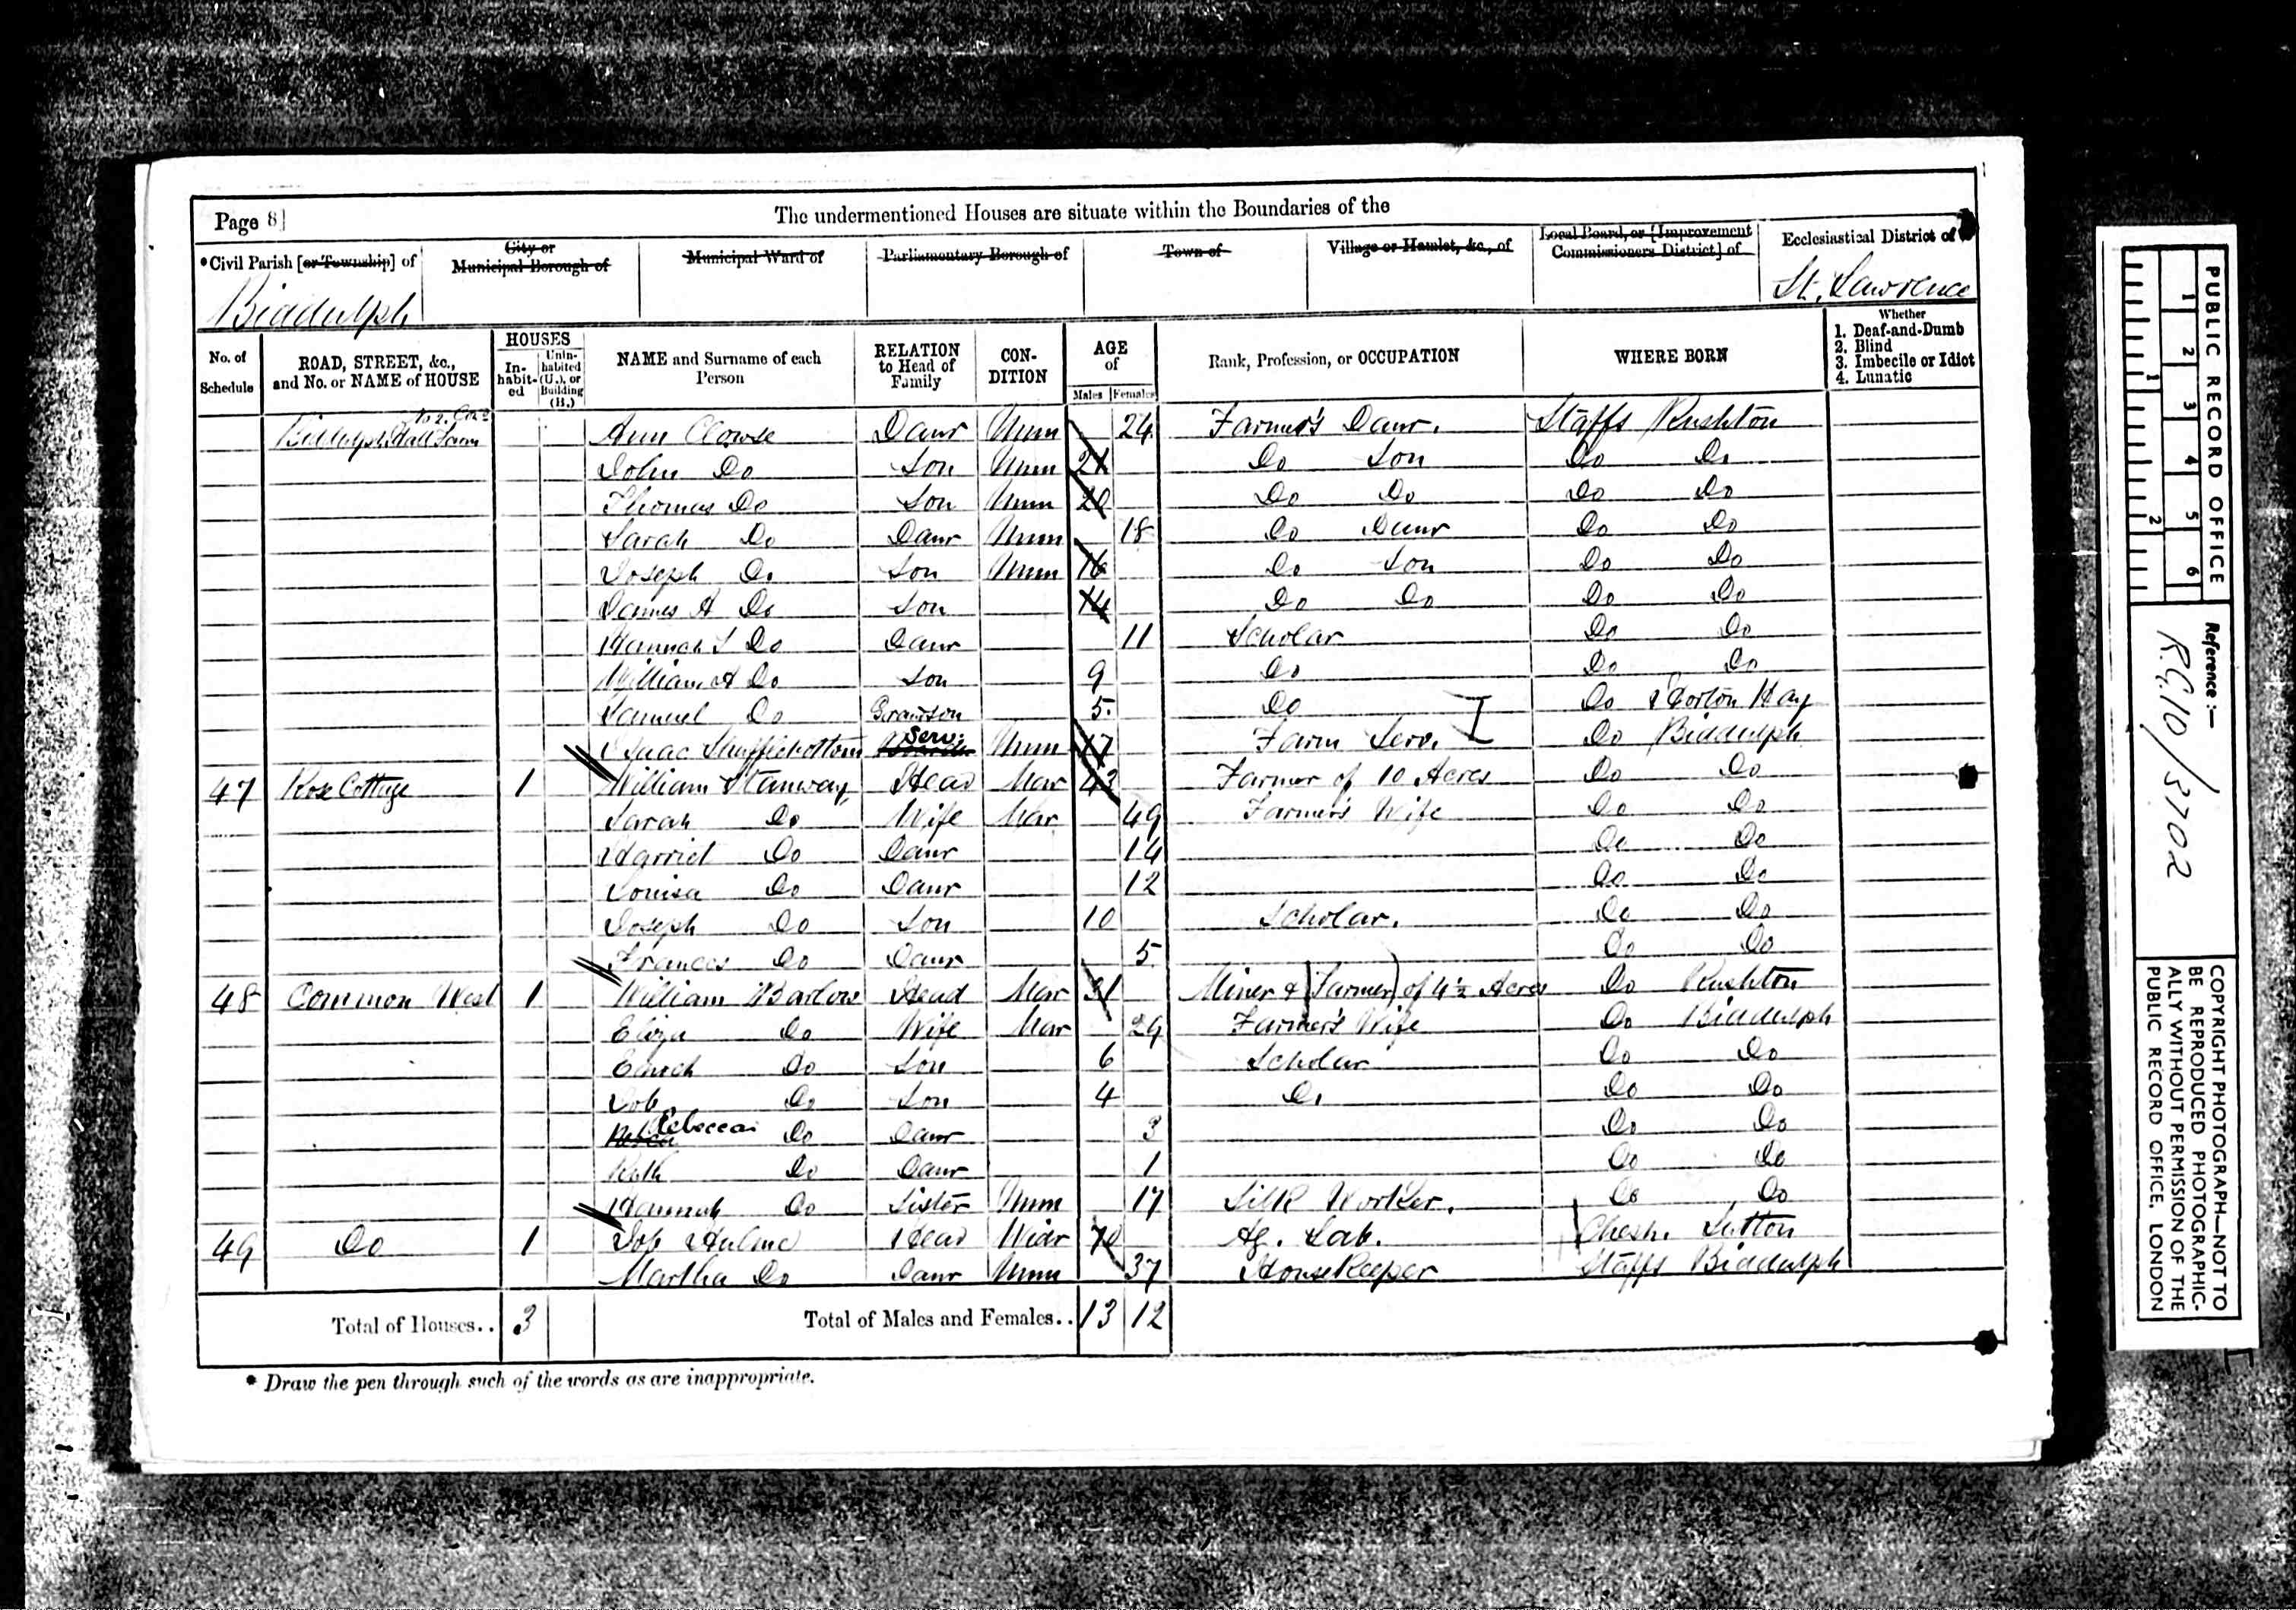 Page 8]
The undermentioned Houses are situate within the Boundaries of the
*Civil Parish [or Township] of
City or Municipal Borough of
Municipal Ward of
Parliamentary Borough of
Town of
Village or Hamlet, &c., of
Local Board, or [Improvement Commissioners District] of
Ecclesiastical District of
Biddulph
St. Lawrence
No. of Schedule
ROAD, STREET, &c., and No. or NAME of HOUSE
HOUSES
In-habit-ed
Unin-habited (U.), or Building (B.)
NAME and Surname of each Person
RELATION to Head of Family
CON-DITION
AGE of
Males
Females
Rank, Profession, or OCCUPATION
WHERE BORN
Whether
1. Deaf-and-Dumb
2. Blind
3. Imbecile or Idiot
4. Lunatic
Biddulph Hall Farm Ann Clowse Daur Unm 24 Farmer's Daur. Staffs Rushton
John Do Son Unm 21 Do Son Do Do
Thomas Do Son Unm 20 Do Do Do Do
Sarah Do Daur Unm 18 Do Daur Do Do
Joseph Do Son Unm 16 Do Son Do Do
James A Do Son 14 Do Do Do Do
Hannah S Do Daur 11 Scholar Do Do
William A Do Son 9 Do Do Do
Samuel Do Grandson 5 Do Do Horton Hay
Isaac Shufflebottom Serv. Unm 17 Farm Serv. Do Biddulph
47 Rose Cottage 1 William Stanway Head Mar 43 Farmer of 10 Acres Do Do
Sarah Do Wife Mar 49 Farmer's Wife Do Do
Harriet Do Daur 14 Do Do
Louisa Do Daur 12 Do Do
Joseph Do Son 10 Scholar. Do Do
Frances Do Daur 5 Do Do
48 Common West 1 William Barlow Head Mar 31 Miner & (Farmer) of 4½ Acres Do Rushton
Eliza Do Wife Mar 29 Farmer's Wife Do Biddulph
Enoch Do Son 6 Scholar Do Do
Job Do Son 4 Do Do Do
Rebecca Do Daur 3 Do Do
Ruth Do Daur 1 Do Do
Hannah Do Sister Unm 17 Silk Worker. Do Do
49 Do 1 Job Hulme Head Widr 70 Ag. Lab. Chesh. Sutton
Martha Do Daur Unm 37 House Keeper Staffs Biddulph
Total of Houses.. 3 Total of Males and Females.. 13 12
* Draw the pen through such of the words as are inappropriate.
PUBLIC RECORD OFFICE
1 2 3 4 5 6
1 2
Reference :-
R.G.10/3702
COPYRIGHT PHOTOGRAPH—NOT TO
BE REPRODUCED PHOTOGRAPHIC-
ALLY WITHOUT PERMISSION OF THE
PUBLIC RECORD OFFICE, LONDON